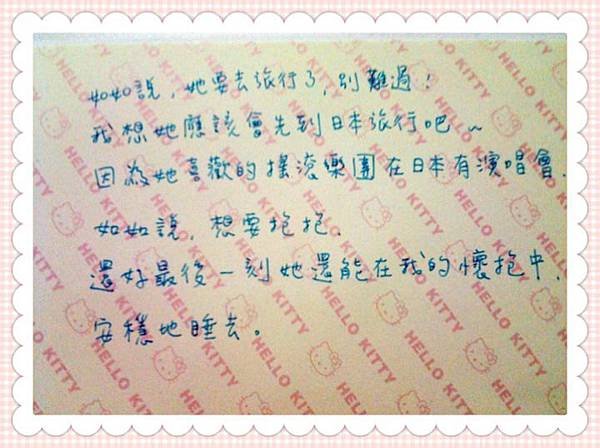 如如說，她要去旅行了，別難過！
我想她應該會先到日本旅行吧～
因為她喜歡的搖滾樂團在日本有演唱會.
如如說，想要抱抱.
還好最後一刻她還能在我的懷抱中.
安穩地睡去。
HELLO KITTY